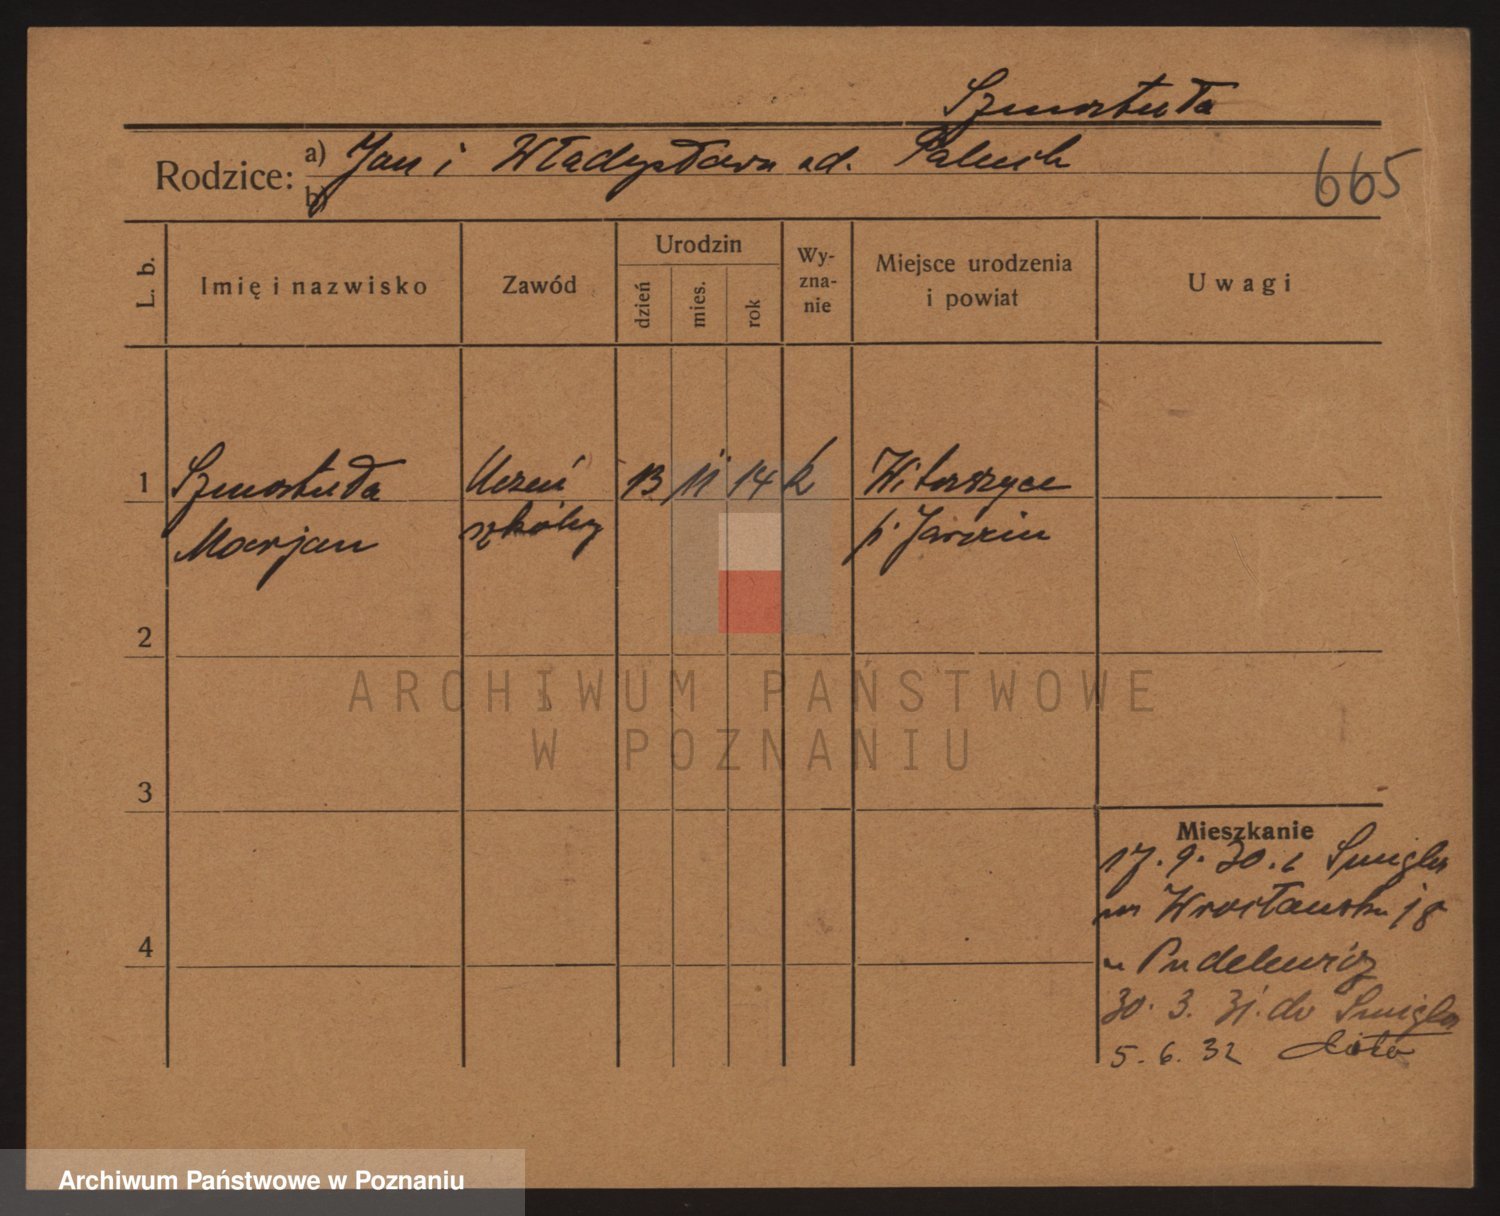 Szmortuła
Rodzice: a) Jan i Władysława ud. Paluch
b)
665
L. b.
Imię i nazwisko
Zawód
Urodzin
dzień
mies.
rok
Wy-
zna-
nie
Miejsce urodzenia
i powiat
Uwagi
1 Szmortuła Uczeń 13 11 14 k Witaszyce
Marjan szkoły p. Jarocin
2
3
4
Mieszkanie
17. 9. 30. z Śmigla
Wrocławska 18
u Pudelewicz
30. 3. 31. do Śmigla
5. 6. 32
ARCHIWUM PAŃSTWOWE
W POZNANIU
Archiwum Państwowe w Poznaniu